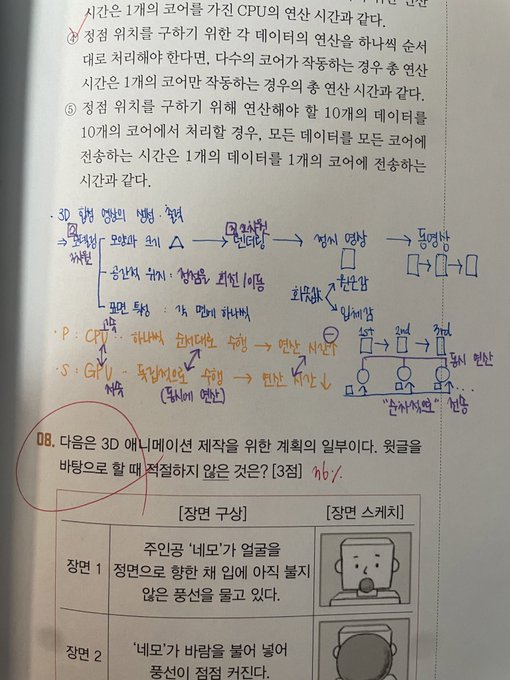 시간은 1개의 코어를 가진 CPU의 연산 시간과 같다.
④ 정점 위치를 구하기 위한 각 데이터의 연산을 하나씩 순서
대로 처리해야 한다면, 다수의 코어가 작동하는 경우 총 연산
시간은 1개의 코어만 작동하는 경우의 총 연산 시간과 같다.
⑤ 정점 위치를 구하기 위해 연산해야 할 10개의 데이터를
10개의 코어에서 처리할 경우, 모든 데이터를 모든 코어에
전송하는 시간은 1개의 데이터를 1개의 코어에 전송하는
시간과 같다.
· 3D 합성 영상의 생성·출력
→ 모델링 모양과 크기 △ → 렌더링 → 정지 영상 → 동영상
3차원 2차원
공간적 위치 : 정점을 회전/이동
표면 특성 : 각 면에 하나씩
화솟값 원근감
입체감
고속
· P : CPU ·· 하나씩 순서대로 수행 → 연산 시간↑
1st → 2nd → 3rd
동시 연산
· S : GPU ·· 독립적으로 수행 → 연산 시간↓
저속 (동시에 연산)
"순차적으로" 전송
08. 다음은 3D 애니메이션 제작을 위한 계획의 일부이다. 윗글을
바탕으로 할 때 적절하지 않은 것은? [3점] 46%
[장면 구상] [장면 스케치]
장면 1
주인공 '네모'가 얼굴을
정면으로 향한 채 입에 아직 불지
않은 풍선을 물고 있다.
장면 2
'네모'가 바람을 불어 넣어
풍선이 점점 커진다.